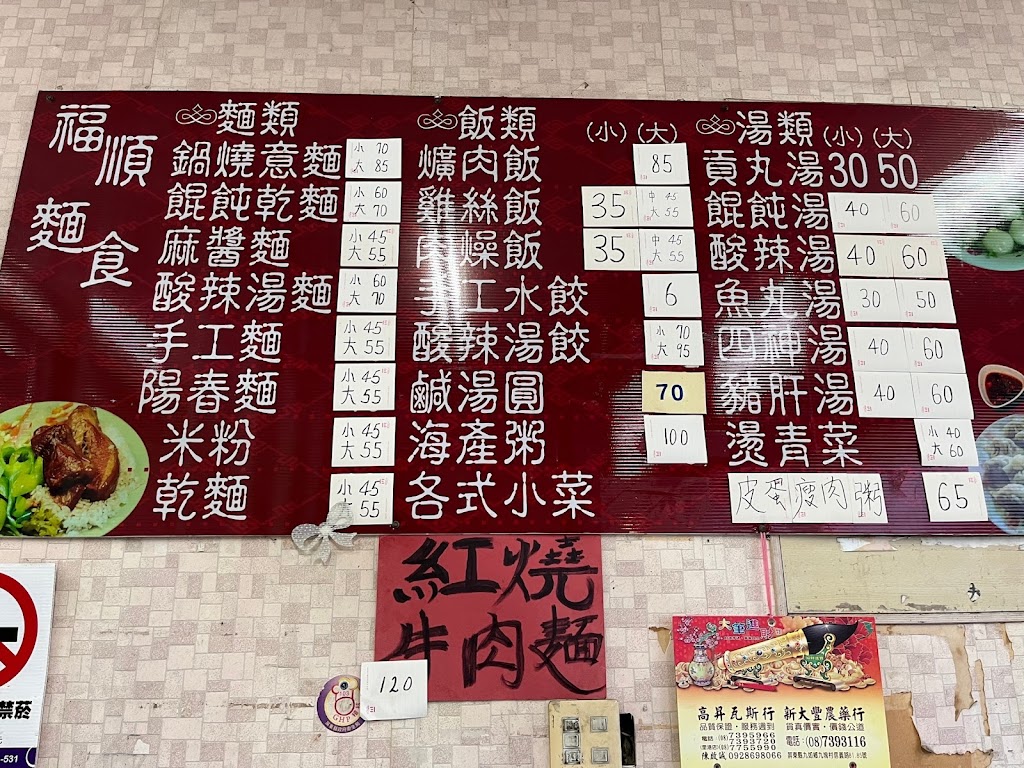 福順麵食
麵類
鍋燒意麵 小70 大85
餛飩乾麵 小60 大70
麻醬麵 小45 大55
酸辣湯麵 小60 大70
手工麵 小45 大55
陽春麵 小45 大55
米粉 小45 大55
乾麵 小45 大55
飯類 (小)(大)
爌肉飯 85
雞絲飯 35 中45 大55
肉燥飯 35 中45 大55
手工水餃 6
酸辣湯餃 小70 大95
鹹湯圓 70
海產粥 100
各式小菜
湯類 (小)(大)
貢丸湯 30 50
餛飩湯 40 60
酸辣湯 40 60
魚丸湯 30 50
四神湯 40 60
豬肝湯 40 60
燙青菜 小40 大60
皮蛋瘦肉粥 65
紅燒
牛肉麵
120
GHP
禁菸
-531
高昇瓦斯行 新大豐農藥行
品質保證・服務週到 貨真價實・價錢公道
電話:(08)7395966
7393720
7755990
陳啟誠 0928698066
電話:(08)7393116